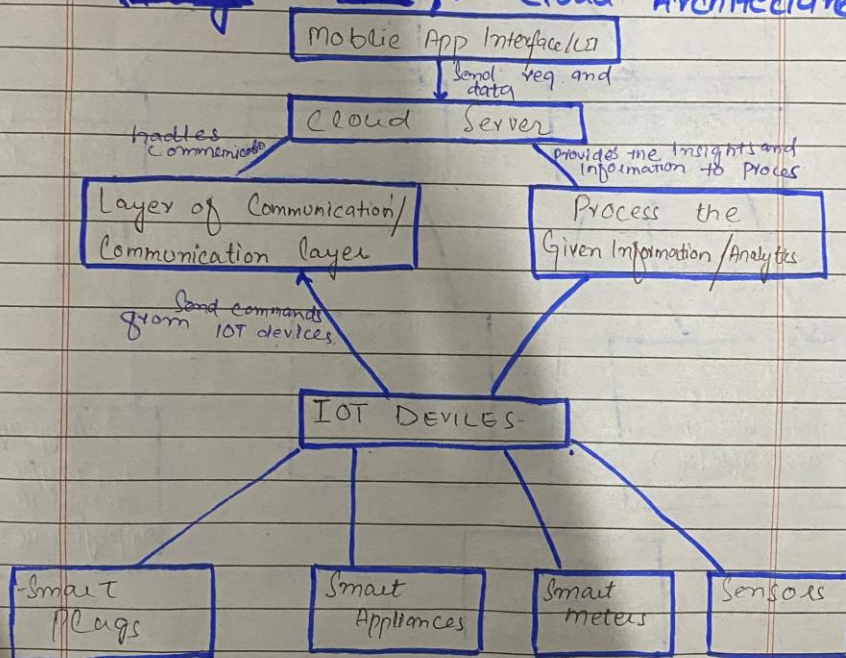 Cloud Architecture
Moblie App Interface/UI
Send req and
data
Cloud Server
hadles
Provides the Insights and
Information to Proces
Layer of Communication/
Communication layer
Process the
Given Information/Analytics
Send commands
from IOT devices.
IOT DEVILES
Smart
Plugs
Smart
Appliances
Smart
meters
Sensors